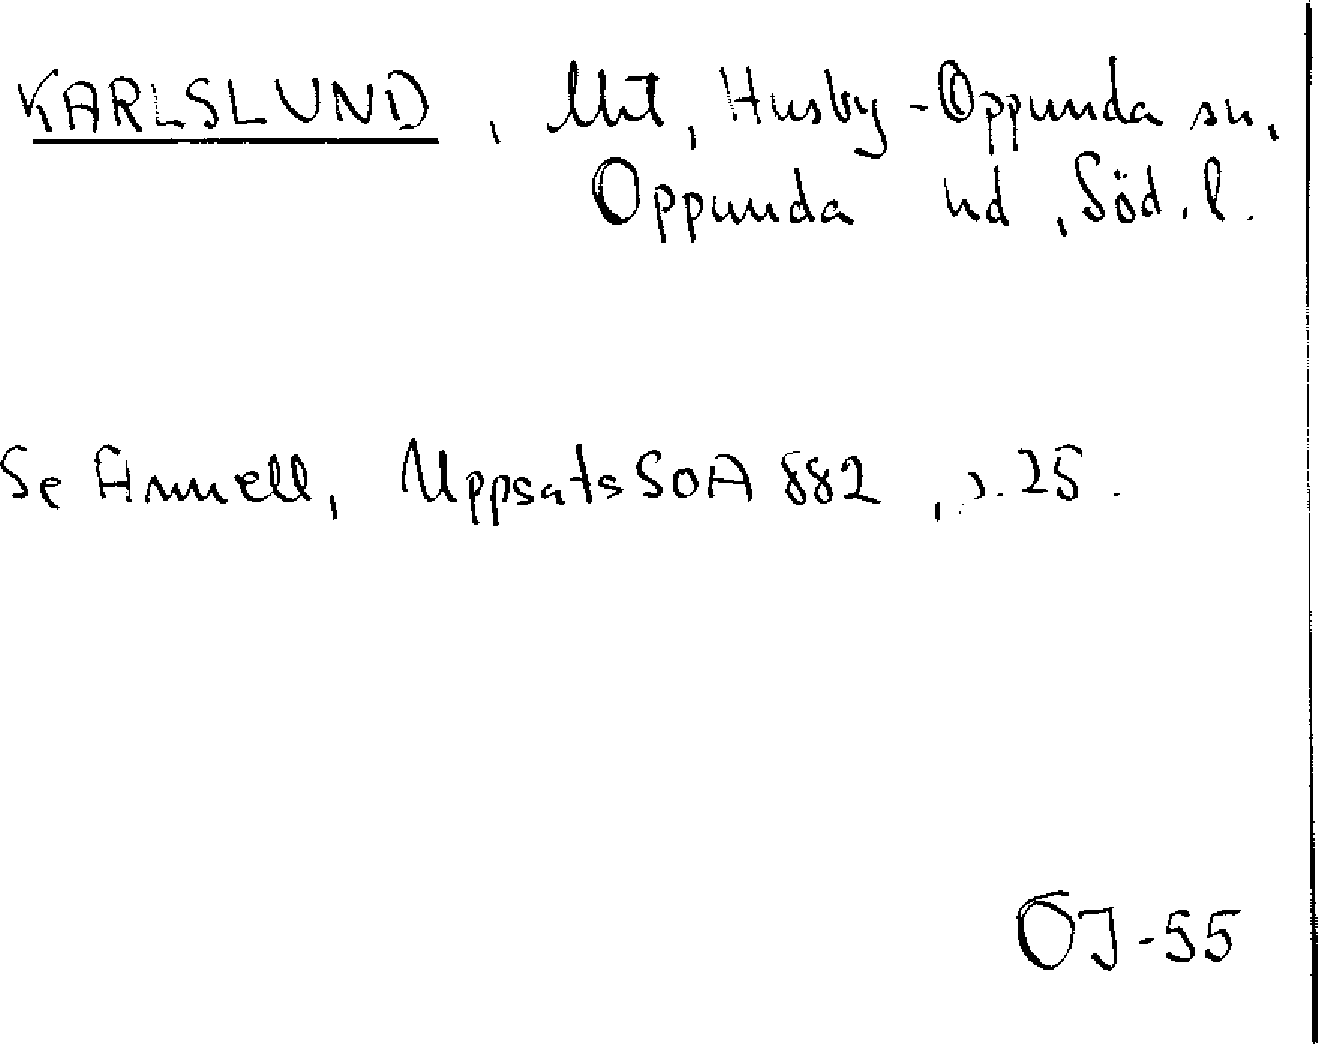 KARLSLUND, Uht, Husby-Oppunda sn,
Oppunda hd, Söd. l.
Se Annell, Uppsats SOA 882, s. 25.
ÖJ-55